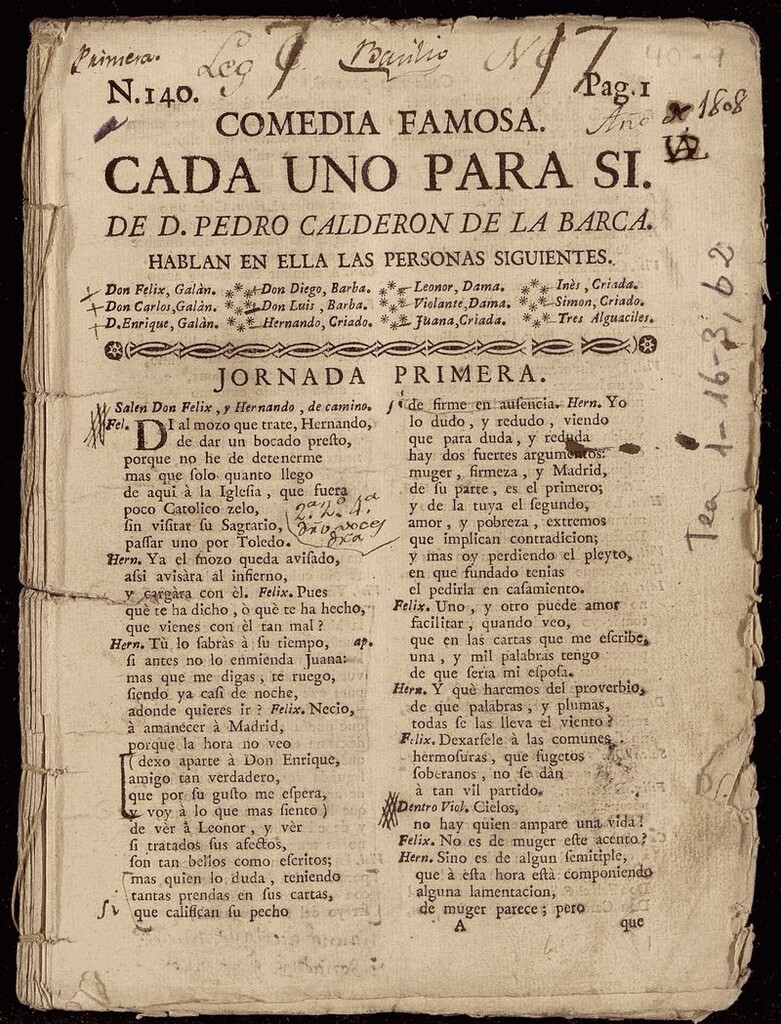 Primera. Leg 7. Basilio No 17
N.140. Pag.1
Año de 1808
COMEDIA FAMOSA.
CADA UNO PARA SI.
DE D. PEDRO CALDERON DE LA BARCA.
HABLAN EN ELLA LAS PERSONAS SIGUIENTES.
Don Felix, Galàn. Don Diego, Barba. Leonor, Dama. Inès, Criada.
Don Carlos, Galàn. Don Luis, Barba. Violante, Dama. Simon, Criado.
D. Enrique, Galàn. Hernando, Criado. Juana, Criada. Tres Alguaciles.
JORNADA PRIMERA.
Salen Don Felix, y Hernando, de camino.
Fel. DI al mozo que trate, Hernando,
de dar un bocado preſto,
porque no he de detenerme
mas que ſolo quanto llego
de aqui à la Igleſia, que fuera
poco Catolico zelo,
ſin viſitar ſu Sagrario,
paſſar uno por Toledo.
2ª 2º 4ª
voces
Hern. Ya el mozo queda aviſado,
aſsi avisàra al infierno,
y cargàra con èl. Felix. Pues
què te ha dicho, ò què te ha hecho,
que vienes con èl tan mal?
Hern. Tù lo ſabràs à ſu tiempo, ap.
ſi antes no lo enmienda Juana:
mas que me digas, te ruego,
ſiendo ya caſi de noche,
adonde quieres ir? Felix. Necio,
à amanecer à Madrid,
porque la hora no veo
(dexo aparte à Don Enrique,
amigo tan verdadero,
que por ſu guſto me eſpera,
y voy à lo que mas ſiento)
de vèr à Leonor, y vèr
ſi tratados ſus afectos,
ſon tan bellos como eſcritos;
mas quien lo duda, teniendo
tantas prendas en ſus cartas,
si que califican ſu pecho
si de firme en auſencia. Hern. Yo
lo dudo, y redudo, viendo
que para duda, y reduda
hay dos fuertes argumentos:
muger, firmeza, y Madrid,
de ſu parte, es el primero;
y de la tuya el ſegundo,
amor, y pobreza, extremos
que implican contradicion;
y mas oy perdiendo el pleyto,
en que fundado tenias
el pedirla en caſamiento.
Felix. Uno, y otro puede amor
facilitar, quando veo,
que en las cartas que me eſcribe,
una, y mil palabras tengo
de que ſeria mi eſpoſa.
Hern. Y què haremos del proverbio,
de que palabras, y plumas,
todas ſe las lleva el viento?
Felix. Dexarſele à las comunes
hermoſuras, que ſugetos
ſoberanos, no ſe dàn
à tan vil partido.
Dentro Viol. Cielos,
no hay quien ampare una vida!
Felix. No es de muger eſte acento?
Hern. Sino es de algun ſemitiple,
que à eſta hora eſtà componiendo
alguna lamentacion,
de muger parece; pero
A que
Tea 1-16-3, b2